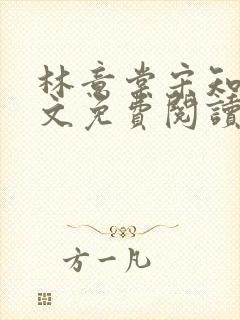 林意棠宋知
文免費閱讀
方一凡